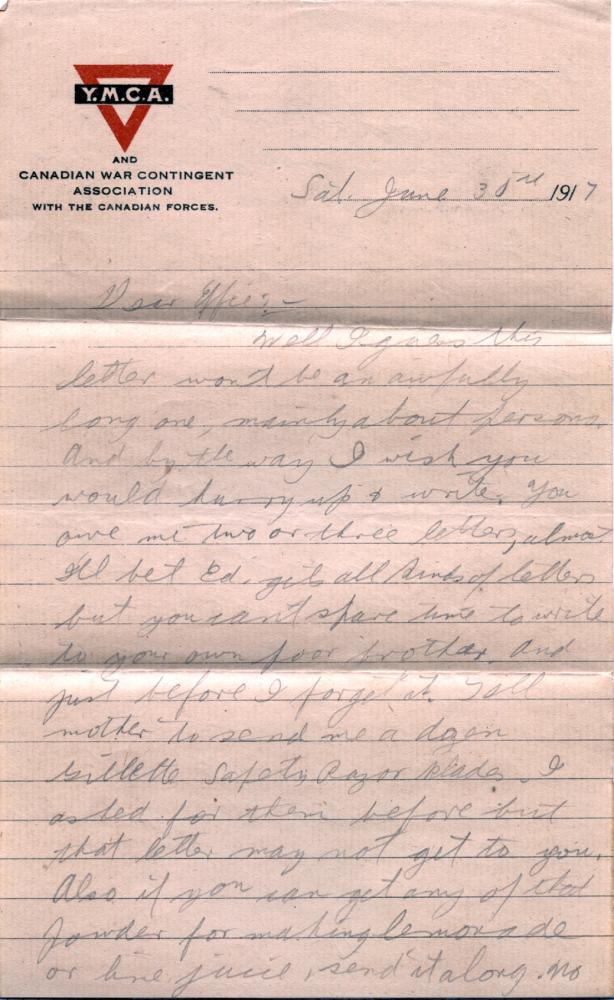 Y.M.C.A.
AND
CANADIAN WAR CONTINGENT
ASSOCIATION
WITH THE CANADIAN FORCES.
Sat. June 30th 1917
Dear Effie:-
Well I guess this
letter wont be an awfully
long one, mainly about persons.
And by the way I wish you
would hurry up & write. You
owe me two or three letters,
I'll bet Ed. gets all kinds of letters
but you can't spare time to write
to your own poor brother. And
just before I forget it. Tell
mother to send me a dozen
Gillette Safety Razor blades. I
asked for them before but
that letter may not get to you.
Also if you can get any of that
powder for making lemonade
or lime juice, send it along. No